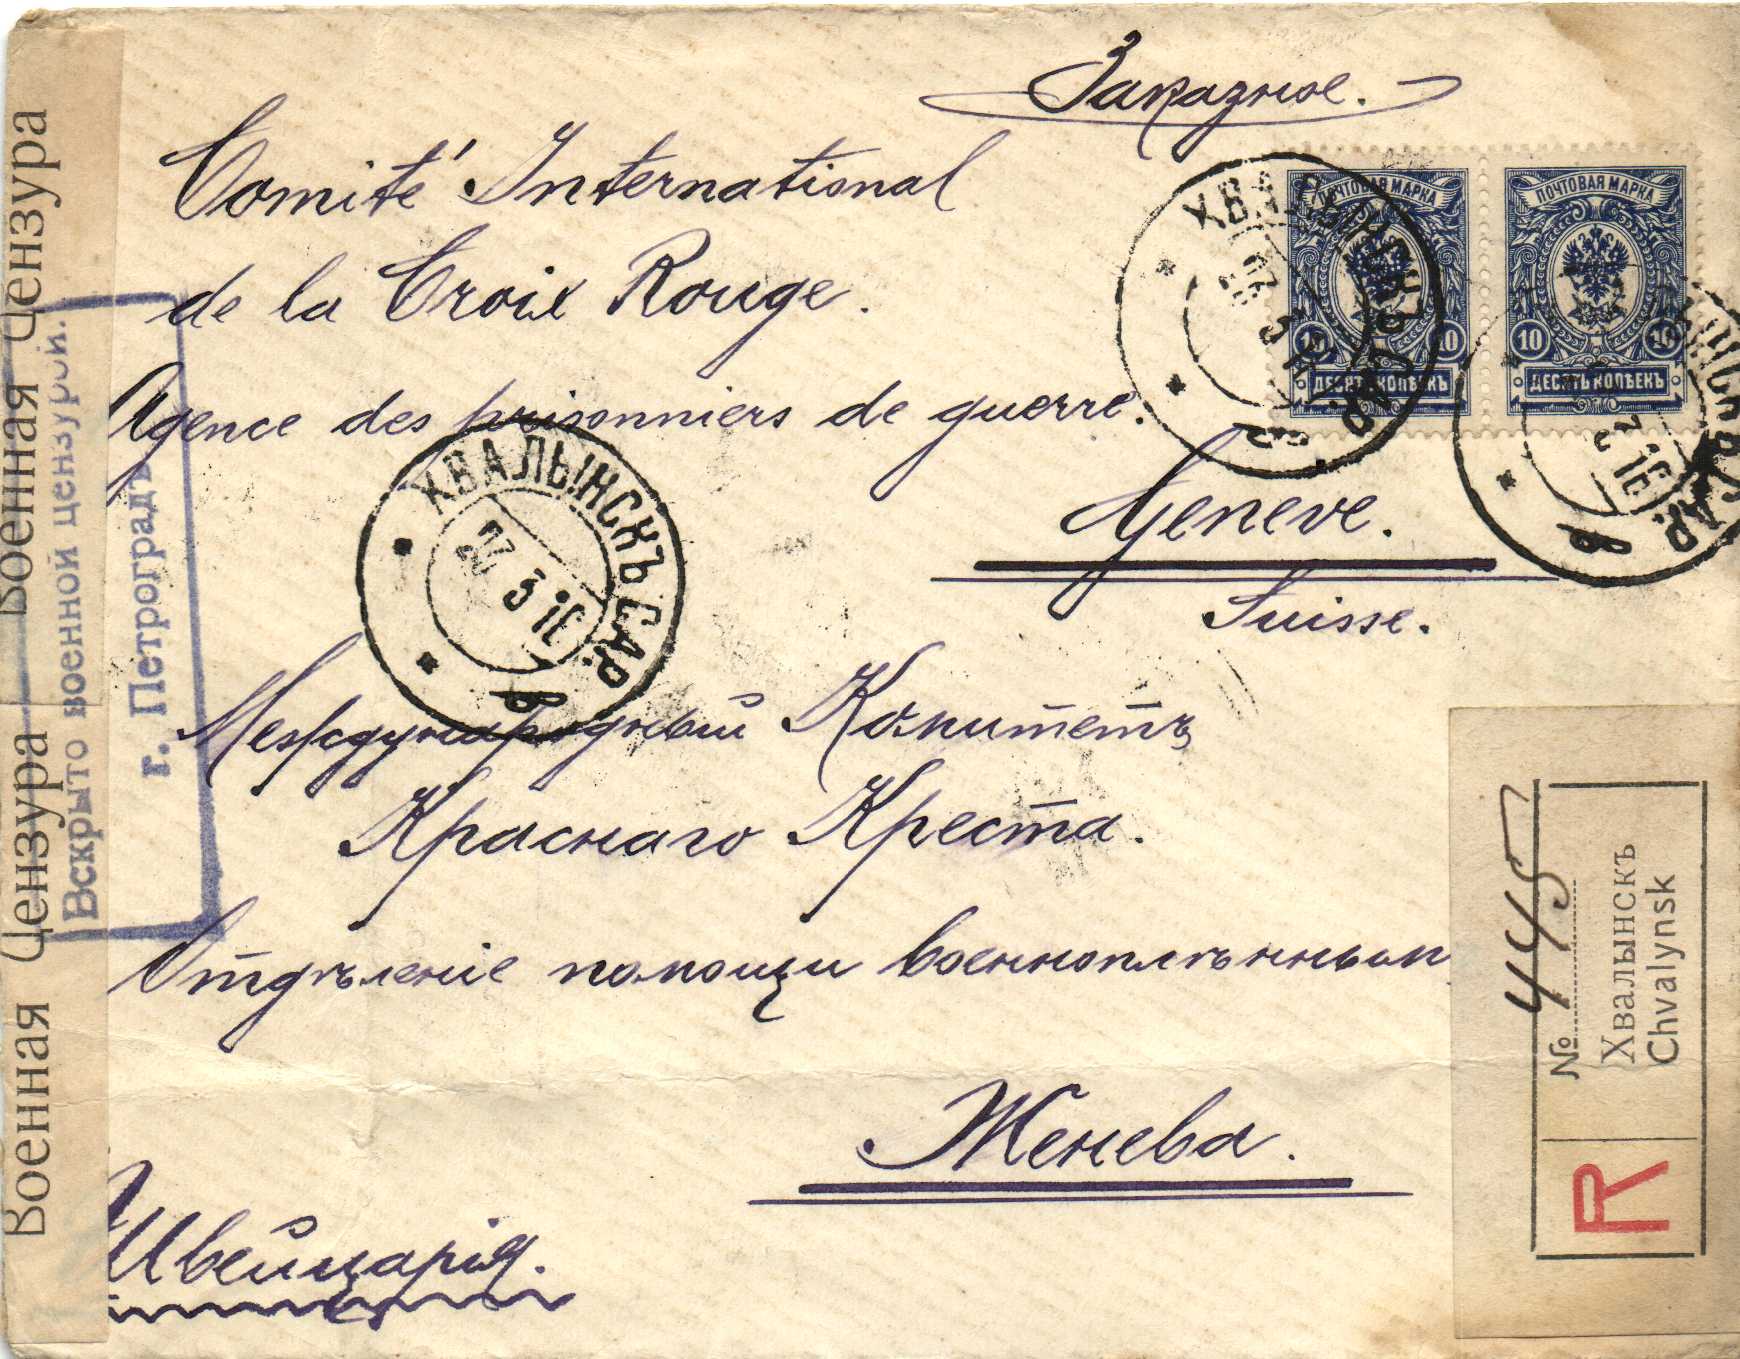 Заказное.
Comité International
de la Croix Rouge.
Agence des prisonniers de guerre.
Genève.
Suisse.
Международный Комитетъ
Краснаго Креста.
Отдѣленіе помощи военноплѣннымъ
Женева.
Швейцарія.
ПОЧТОВАЯ МАРКА
10 10
ДЕСЯТЬ КОПѢЕКЪ
ПОЧТОВАЯ МАРКА
10 10
ДЕСЯТЬ КОПѢЕКЪ
ХВАЛЫНСКЪ САР.
27 3 16
В
ХВАЛЫНСКЪ САР.
27 3 16
В
ЫНСКЪ САР.
3 16
В
Военная Цензура Военная Цензура
Вскрыто военной цензурой.
г. Петроградъ
№ 445
Хвалынскъ
Chvalynsk
R